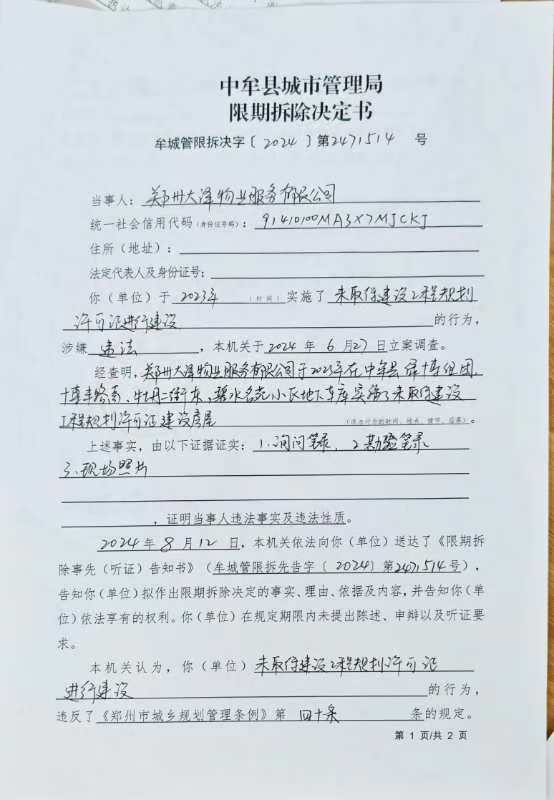 中牟县城市管理局
限期拆除决定书
牟城管限拆决字〔2024〕第2471514 号
当事人：郑州大泽物业服务有限公司
统一社会信用代码（身份证号码）：91410100MA3X7MJCKJ
住所（地址）：
法定代表人及身份证号：
你（单位）于 2023年 （时间）实施了 未取得建设工程规划
许可证进行建设 的行为，
涉嫌 违法 ，本机关于2024 年 6月27日立案调查。
经查明，郑州大泽物业服务有限公司于2023年在中牟县绿博组团，
博丰路南，牡丹二街东，碧水名苑小区地下车库实施了未取得建设
工程规划许可证建设房屋 （违法行为的时间、地点、情节、后果）。
上述事实，由以下证据证实：1.询问笔录、2.勘验笔录
3.现场照片
，证明当事人违法事实及违法性质。
2024年8月12日，本机关依法向你（单位）送达了《限期拆
除事先（听证）告知书》（牟城管限拆先告字〔2024〕第2471514号），
告知你（单位）拟作出限期拆除决定的事实、理由、依据及内容，并告知你（单
位）依法享有的权利。你（单位）在规定期限内未提出陈述、申辩以及听证要
求。
本机关认为，你（单位）未取得建设工程规划许可证
进行建设 的行为，
违反了《郑州市城乡规划管理条例》第 四十条 条的规定。
第 1 页/共 2 页